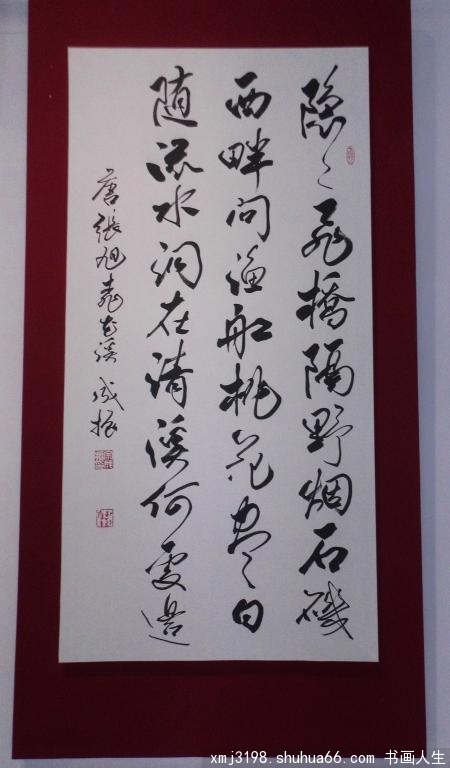 隐〻飛橋隔野烟石磯
西畔问渔船桃花尽日
随流水洞在清溪何處邊
唐張旭桃花溪 成振
xmj3198.shuhua66.com 书画人生